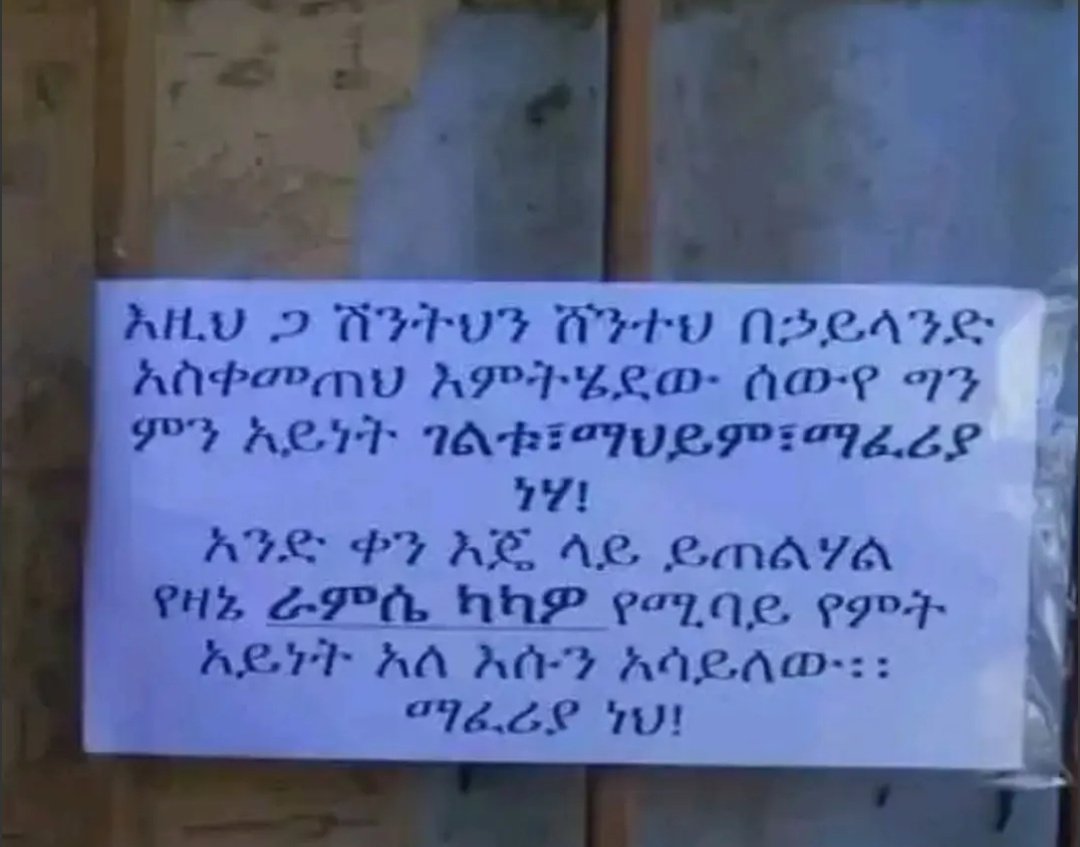 እዚህ ጋ ሽንትህን ሸንተህ በኃይላንድ
አስቀመጠህ እምትሄደው ሰውዬ ግን
ምን አይነት ገልቱ፣ማህይም፣ማፈሪያ
ነሃ!
አንድ ቀን እጄ ላይ ይጠልሃል
የዛኔ ራምሴ ካካዎ የሚባይ የምት
አይነት አለ እሱን አሳይለው፡፡
ማፈሪያ ነህ!